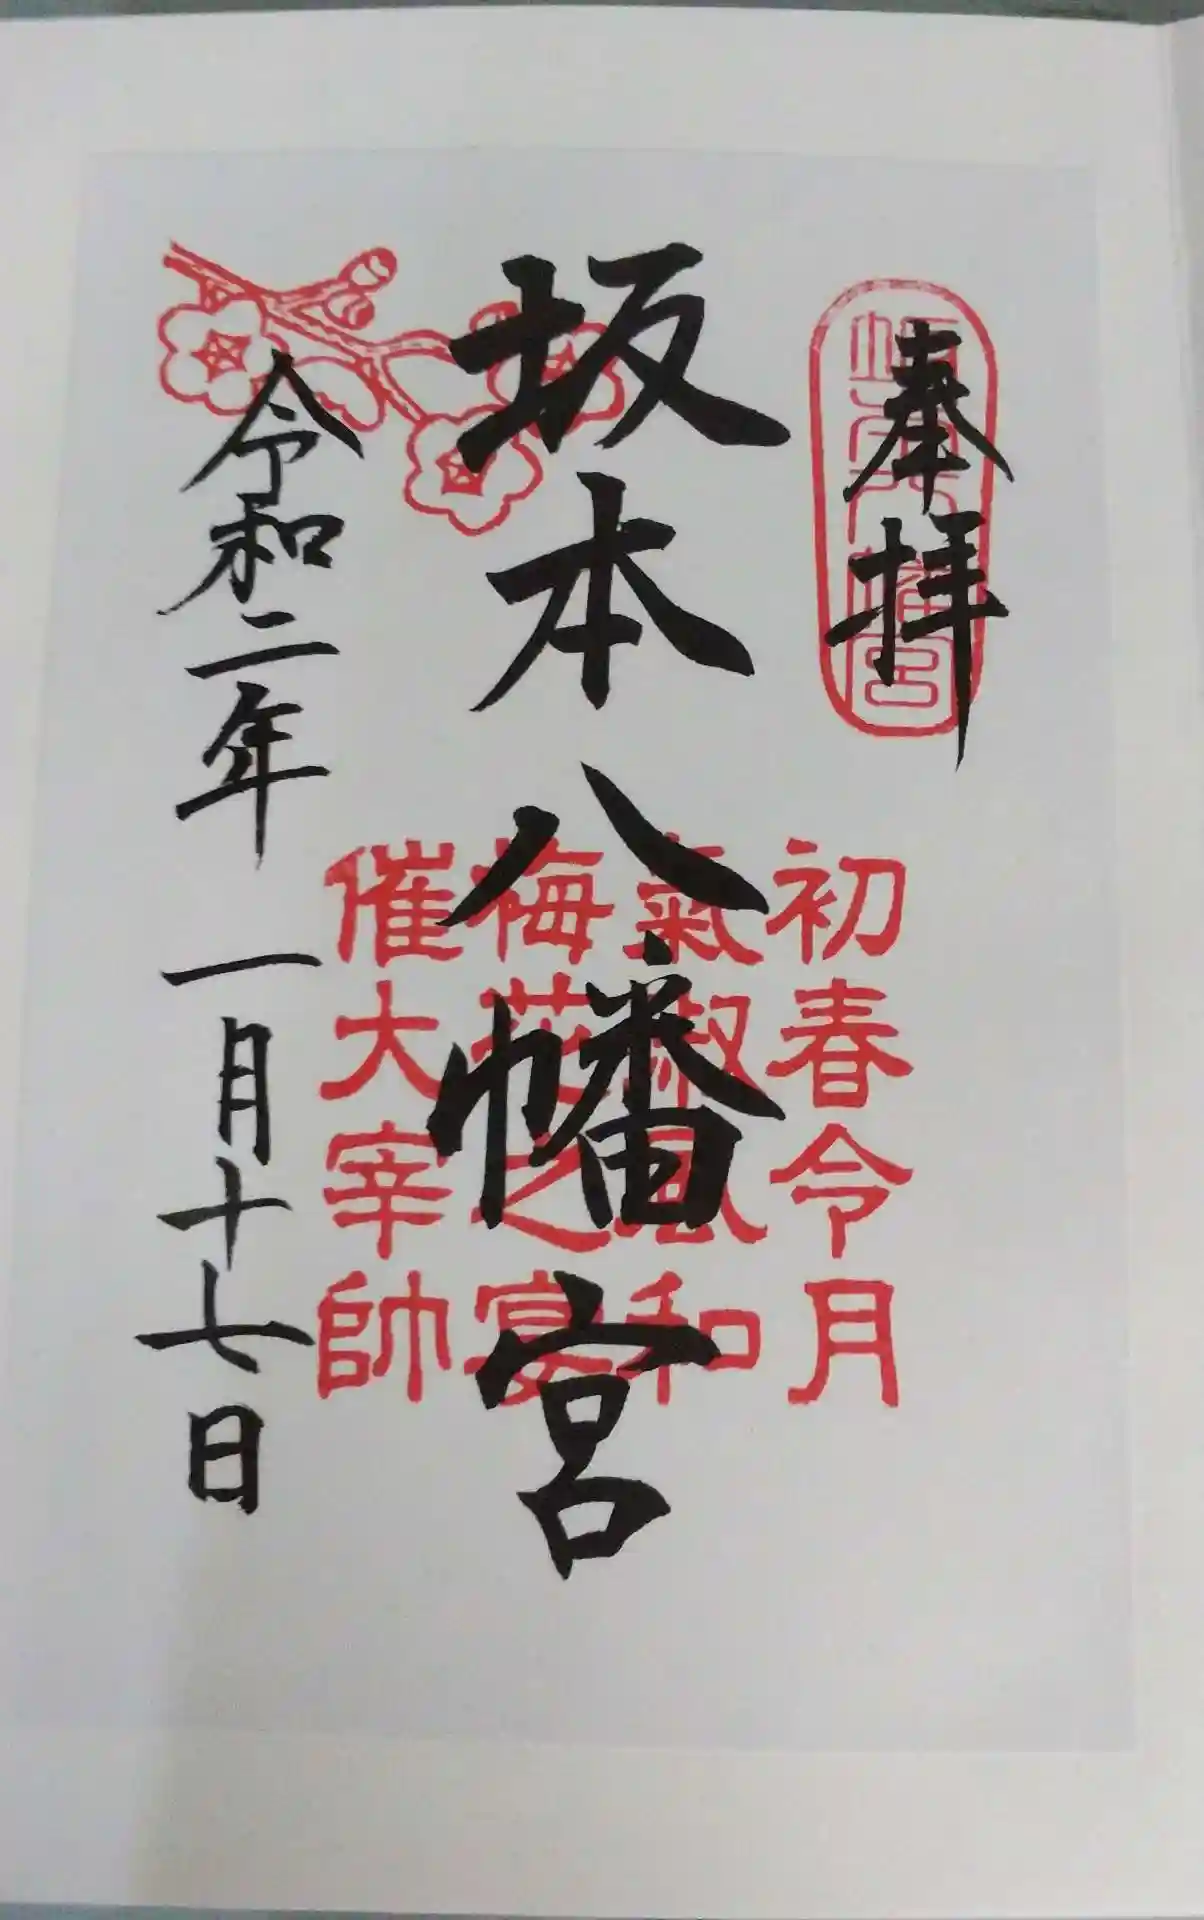 奉拝
坂本八幡宮
初春令月
氣淑風和
梅花之宴
催大宰帥
坂本八幡宮
令和二年 一月十七日